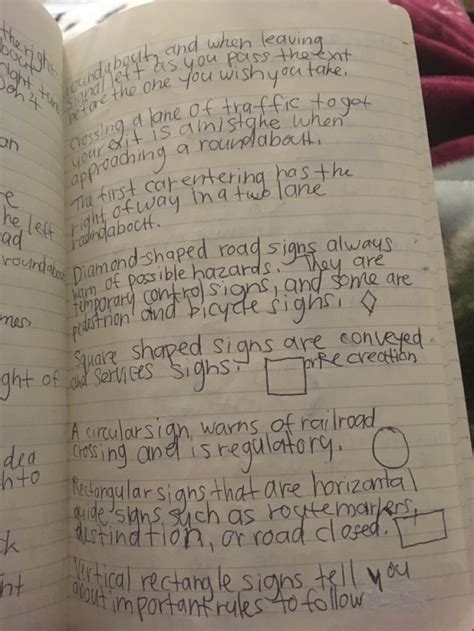 the right
about
right, turn
on
he left
ad
roundabou
mes,
ght of
dea
h to
k
nt
roundabouth, and when leaving
signal left as you pass the ext
before the one you wish you take.
Crossing a lane of traffic to get
your exit is a mistake when
approaching a roundabout.
The first car entering has the
right of way in a two lane
roundabout.
Diamond-shaped road signs always
warn of possible hazards. They are
temporary control signs, and some are
pedestrion and bicycle signs.
Square shaped signs are conveyed
and services signs. or Recreation
A circular sign warns of railroad
crossing and is regulatory.
Rectangular signs that are horizontal
guide signs such as route markers,
destination, or road closed.
Vertical rectangle signs tell you
about important rules to follow